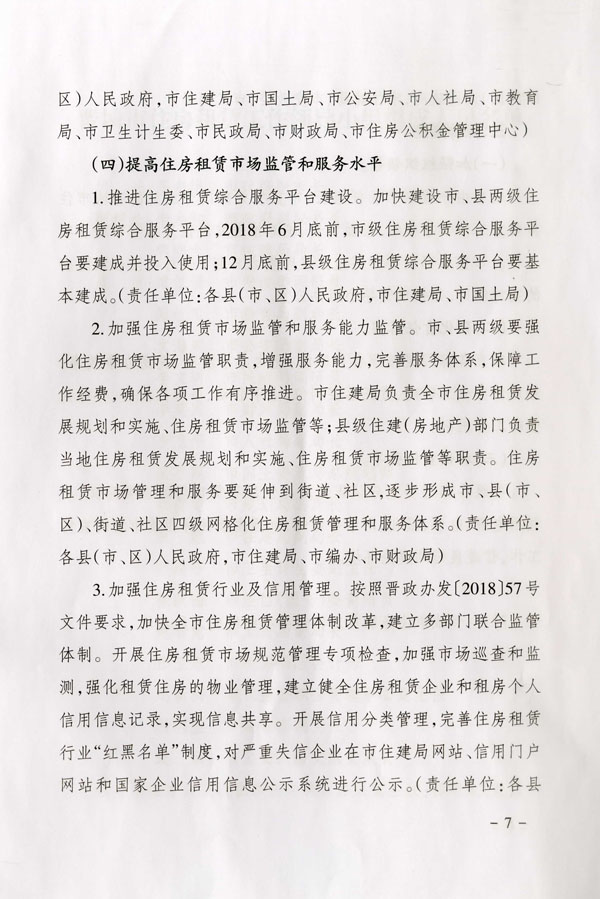 区)人民政府,市住建局、市国土局、市公安局、市人社局、市教育
局、市卫生计生委、市民政局、市财政局、市住房公积金管理中心)
(四)提高住房租赁市场监管和服务水平
1.推进住房租赁综合服务平台建设。加快建设市、县两级住
房租赁综合服务平台,2018年6月底前,市级住房租赁综合服务平
台要建成并投入使用;12月底前,县级住房租赁综合服务平台要基
本建成。(责任单位:各县(市、区)人民政府,市住建局、市国土局)
2.加强住房租赁市场监管和服务能力监管。市、县两级要强
化住房租赁市场监管职责,增强服务能力,完善服务体系,保障工
作经费,确保各项工作有序推进。市住建局负责全市住房租赁发
展规划和实施、住房租赁市场监管等;县级住建(房地产)部门负责
当地住房租赁发展规划和实施、住房租赁市场监管等职责。住房
租赁市场管理和服务要延伸到街道、社区,逐步形成市、县(市、
区)、街道、社区四级网格化住房租赁管理和服务体系。(责任单位:
各县(市、区)人民政府,市住建局、市编办、市财政局)
3.加强住房租赁行业及信用管理。按照晋政办发〔2018〕57号
文件要求,加快全市住房租赁管理体制改革,建立多部门联合监管
体制。开展住房租赁市场规范管理专项检查,加强市场巡查和监
测,强化租赁住房的物业管理,建立健全住房租赁企业和租房个人
信用信息记录,实现信息共享。开展信用分类管理,完善住房租赁
行业“红黑名单”制度,对严重失信企业在市住建局网站、信用门户
网站和国家企业信用信息公示系统进行公示。(责任单位:各县
- 7 -